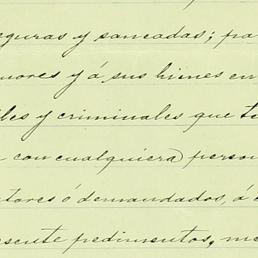 eguras y saneadas; pa
nores y á sus bienes en
iles y criminales que tu
con cualquiera perso
tores ó demandados, á c
esente pedimentos, me